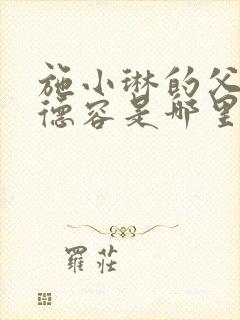 施小琳的父
德容是哪里
羅莊